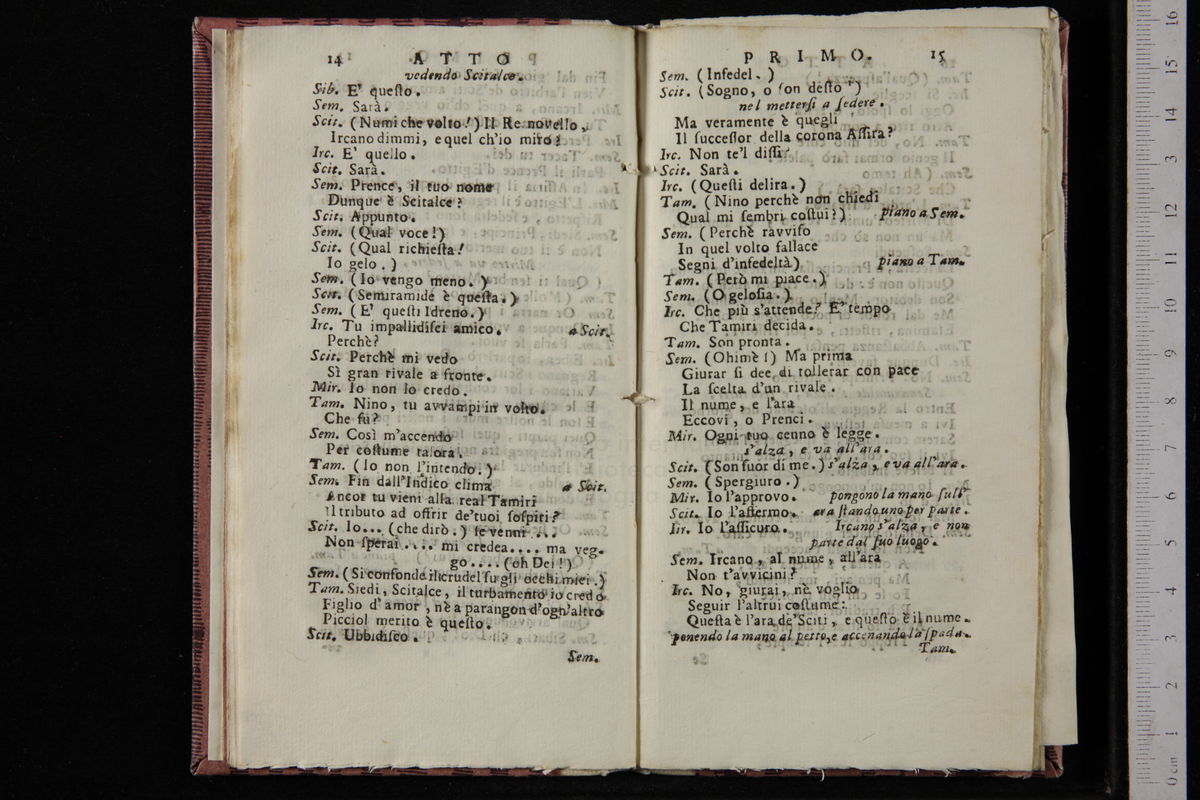 14 ATTO
vedendo Scitalce.
Sib. E' queſto.
Sem. Sarà.
Scit. (Numi che volto!) Il Re novello,
Ircano dimmi, e quel ch'io miro?
Irc. E' quello.
Scit. Sarà.
Sem. Prence, il tuo nome
Dunque è Scitalce?
Scit. Appunto.
Sem. (Qual voce!)
Scit. (Qual richieſta!
Io gelo.)
Sem. (Io vengo meno.)
Scit. (Semiramide è queſta.)
Sem. (E' queſti Idreno.)
Irc. Tu impallidiſci amico. a Scit.
Perchè?
Scit. Perchè mi vedo
Sì gran rivale a fronte.
Mir. Io non lo credo.
Tam. Nino, tu avvampi in volto.
Che fu?
Sem. Così m'accendo
Per coſtume talora.
Tam. (Io non l'intendo.)
Sem. Fin dall'Indico clima a Scit.
Ancor tu vieni alla real Tamiri
Il tributo ad offrir de'tuoi ſoſpiri?
Scit. Io... (che dirò.) ſe venni ...
Non ſperai .... mi credea.... ma veg-
go .... (oh Dei!)
Sem. (Si confonde il crudel ſu gli occhi miei.)
Tam. Siedi, Scitalce, il turbamento io credo
Figlio d'amor, nè a parangon d'ogn'altro
Picciol merito è queſto.
Scit. Ubbidiſco.
Sem.
PRIMO. 15
Sem. (Infedel.)
Scit. (Sogno, o ſon deſto?)
nel metterſi a ſedere.
Ma veramente è quegli
Il ſucceſſor della corona Aſſira?
Irc. Non te'l diſſi?
Scit. Sarà.
Irc. (Queſti delira.)
Tam. (Nino perchè non chiedi
Qual mi ſembri coſtui?) piano a Sem.
Sem. (Perchè ravviſo
In quel volto fallace
Segni d'infedeltà) piano a Tam.
Tam. (Però mi piace.)
Sem. (O geloſia.)
Irc. Che più s'attende? E' tempo
Che Tamiri decida.
Tam. Son pronta.
Sem. (Ohimè!) Ma prima
Giurar ſi dee di tollerar con pace
La ſcelta d'un rivale.
Il nume, e l'ara
Eccovi, o Prenci.
Mir. Ogni tuo cenno è legge.
s'alza, e va all'ara.
Scit. (Son fuor di me.) s'alza, e va all'ara.
Sem. (Spergiuro.)
Mir. Io l'approvo. pongono la mano ſull'
Scit. Io l'affermo. ara ſtando uno per parte.
Irc. Io l'aſſicuro. Ircano s'alza, e non
parte dal ſuo luogo.
Sem. Ircano, al nume, all'ara
Non t'avvicini?
Irc. No, giurai, nè voglio
Seguir l'altrui coſtume:
Queſta è l'ara de'Sciti, e queſto è il nume.
ponendo la mano al petto, e accenando la ſpada.
Tam.